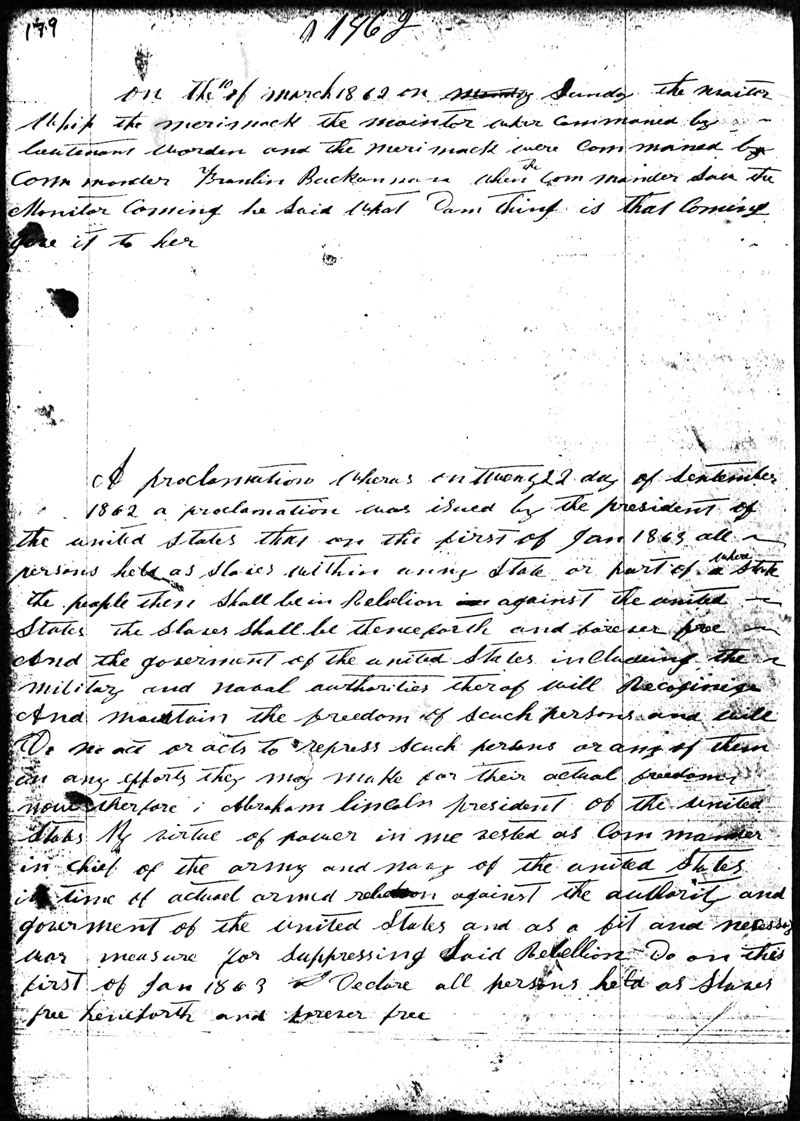 179
1862
on the 10 of march 1862 on monday Sunday the moaitor
Whip the merimack the moainter wher Commaned by
lieutenant Worden and the Merimack were Commaned by
Com mander Franlin Backannan when the Com mander Saw the
Monitor Coming he Said What Dam thing is that Coming
give it to her
A proclamation Wheras on tweny 22 day of September
1862 a proclamation was issued by the president of
the united States that on the first of Jan 1863 all
persons held as Slaves Within anny State or part of a State where
the people then Shall be in Rebelion in against the united
States the Slaves Shall be thenceforth and forever free
And the goverment of the united States in Cludeing the
military and naval authorities therof Will Recoginize
And maintain the freedom of scuch persons and will
Do no act or acts to repress scuch persons or any of them
in any efforts they may make for their actual freedom
now therfore i Abraham lincoln president of the united
States By virtue of power in me vested as Com mander
in chief of the army and navy of the united States
in time of actuel armed rebelion against the authority and
goverment of the united States and as a fit and necessary
war measure for suppressing Said Rebellion Do on this
first of Jan 1863 Declare all persons held as Slaves
free henceforth and forever free